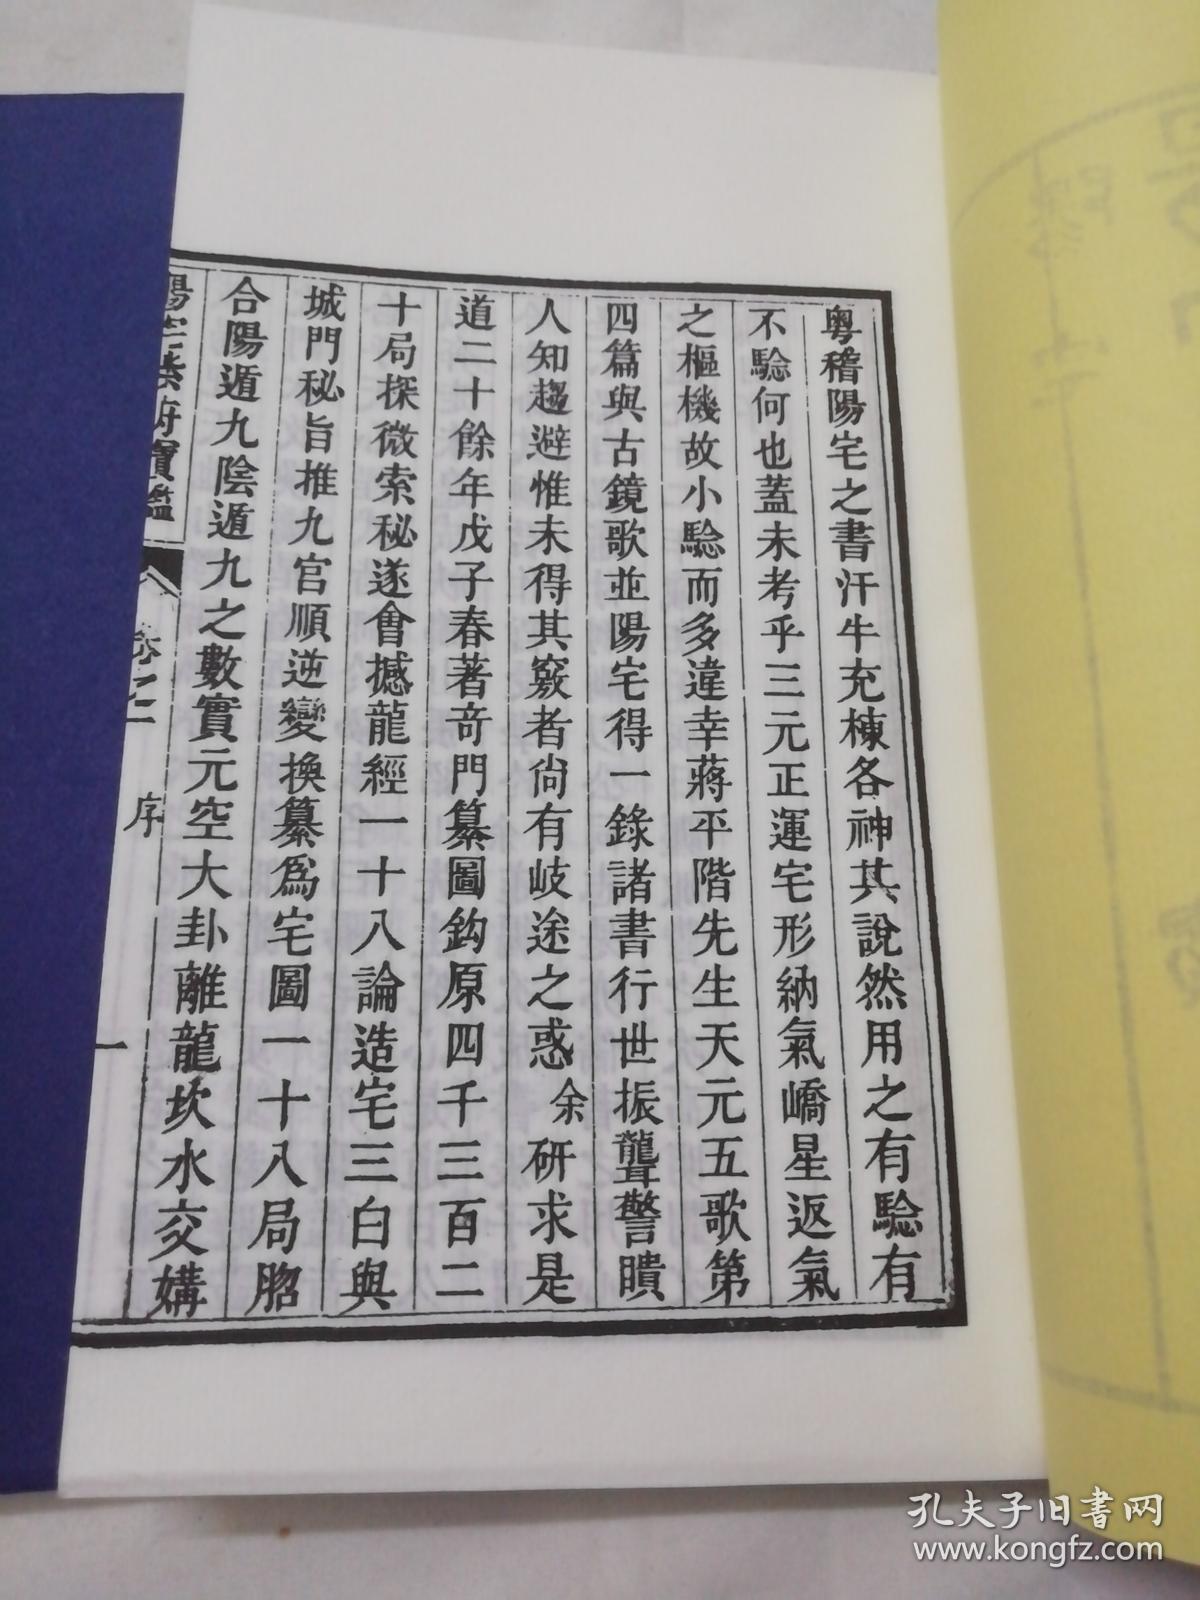 粤稽陽宅之書汗牛充棟各神其說然用之有驗有
不驗何也蓋未考乎三元正運宅形納氣嶠星返氣
之樞機故小驗而多違幸蔣平階先生天元五歌第
四篇與古鏡歌並陽宅得一錄諸書行世振聾警瞶
人知趨避惟未得其竅者尚有岐途之惑余研求是
道二十餘年戊子春著奇門纂圖鈎原四千三百二
十局探微索秘遂會撼龍經一十八論造宅三白與
城門秘旨推九宮順逆變換纂爲宅圖一十八局脗
合陽遁九陰遁九之數實元空大卦離龍坎水交媾
府寶鑑
序
一
孔夫子旧书网
www.kongfz.com